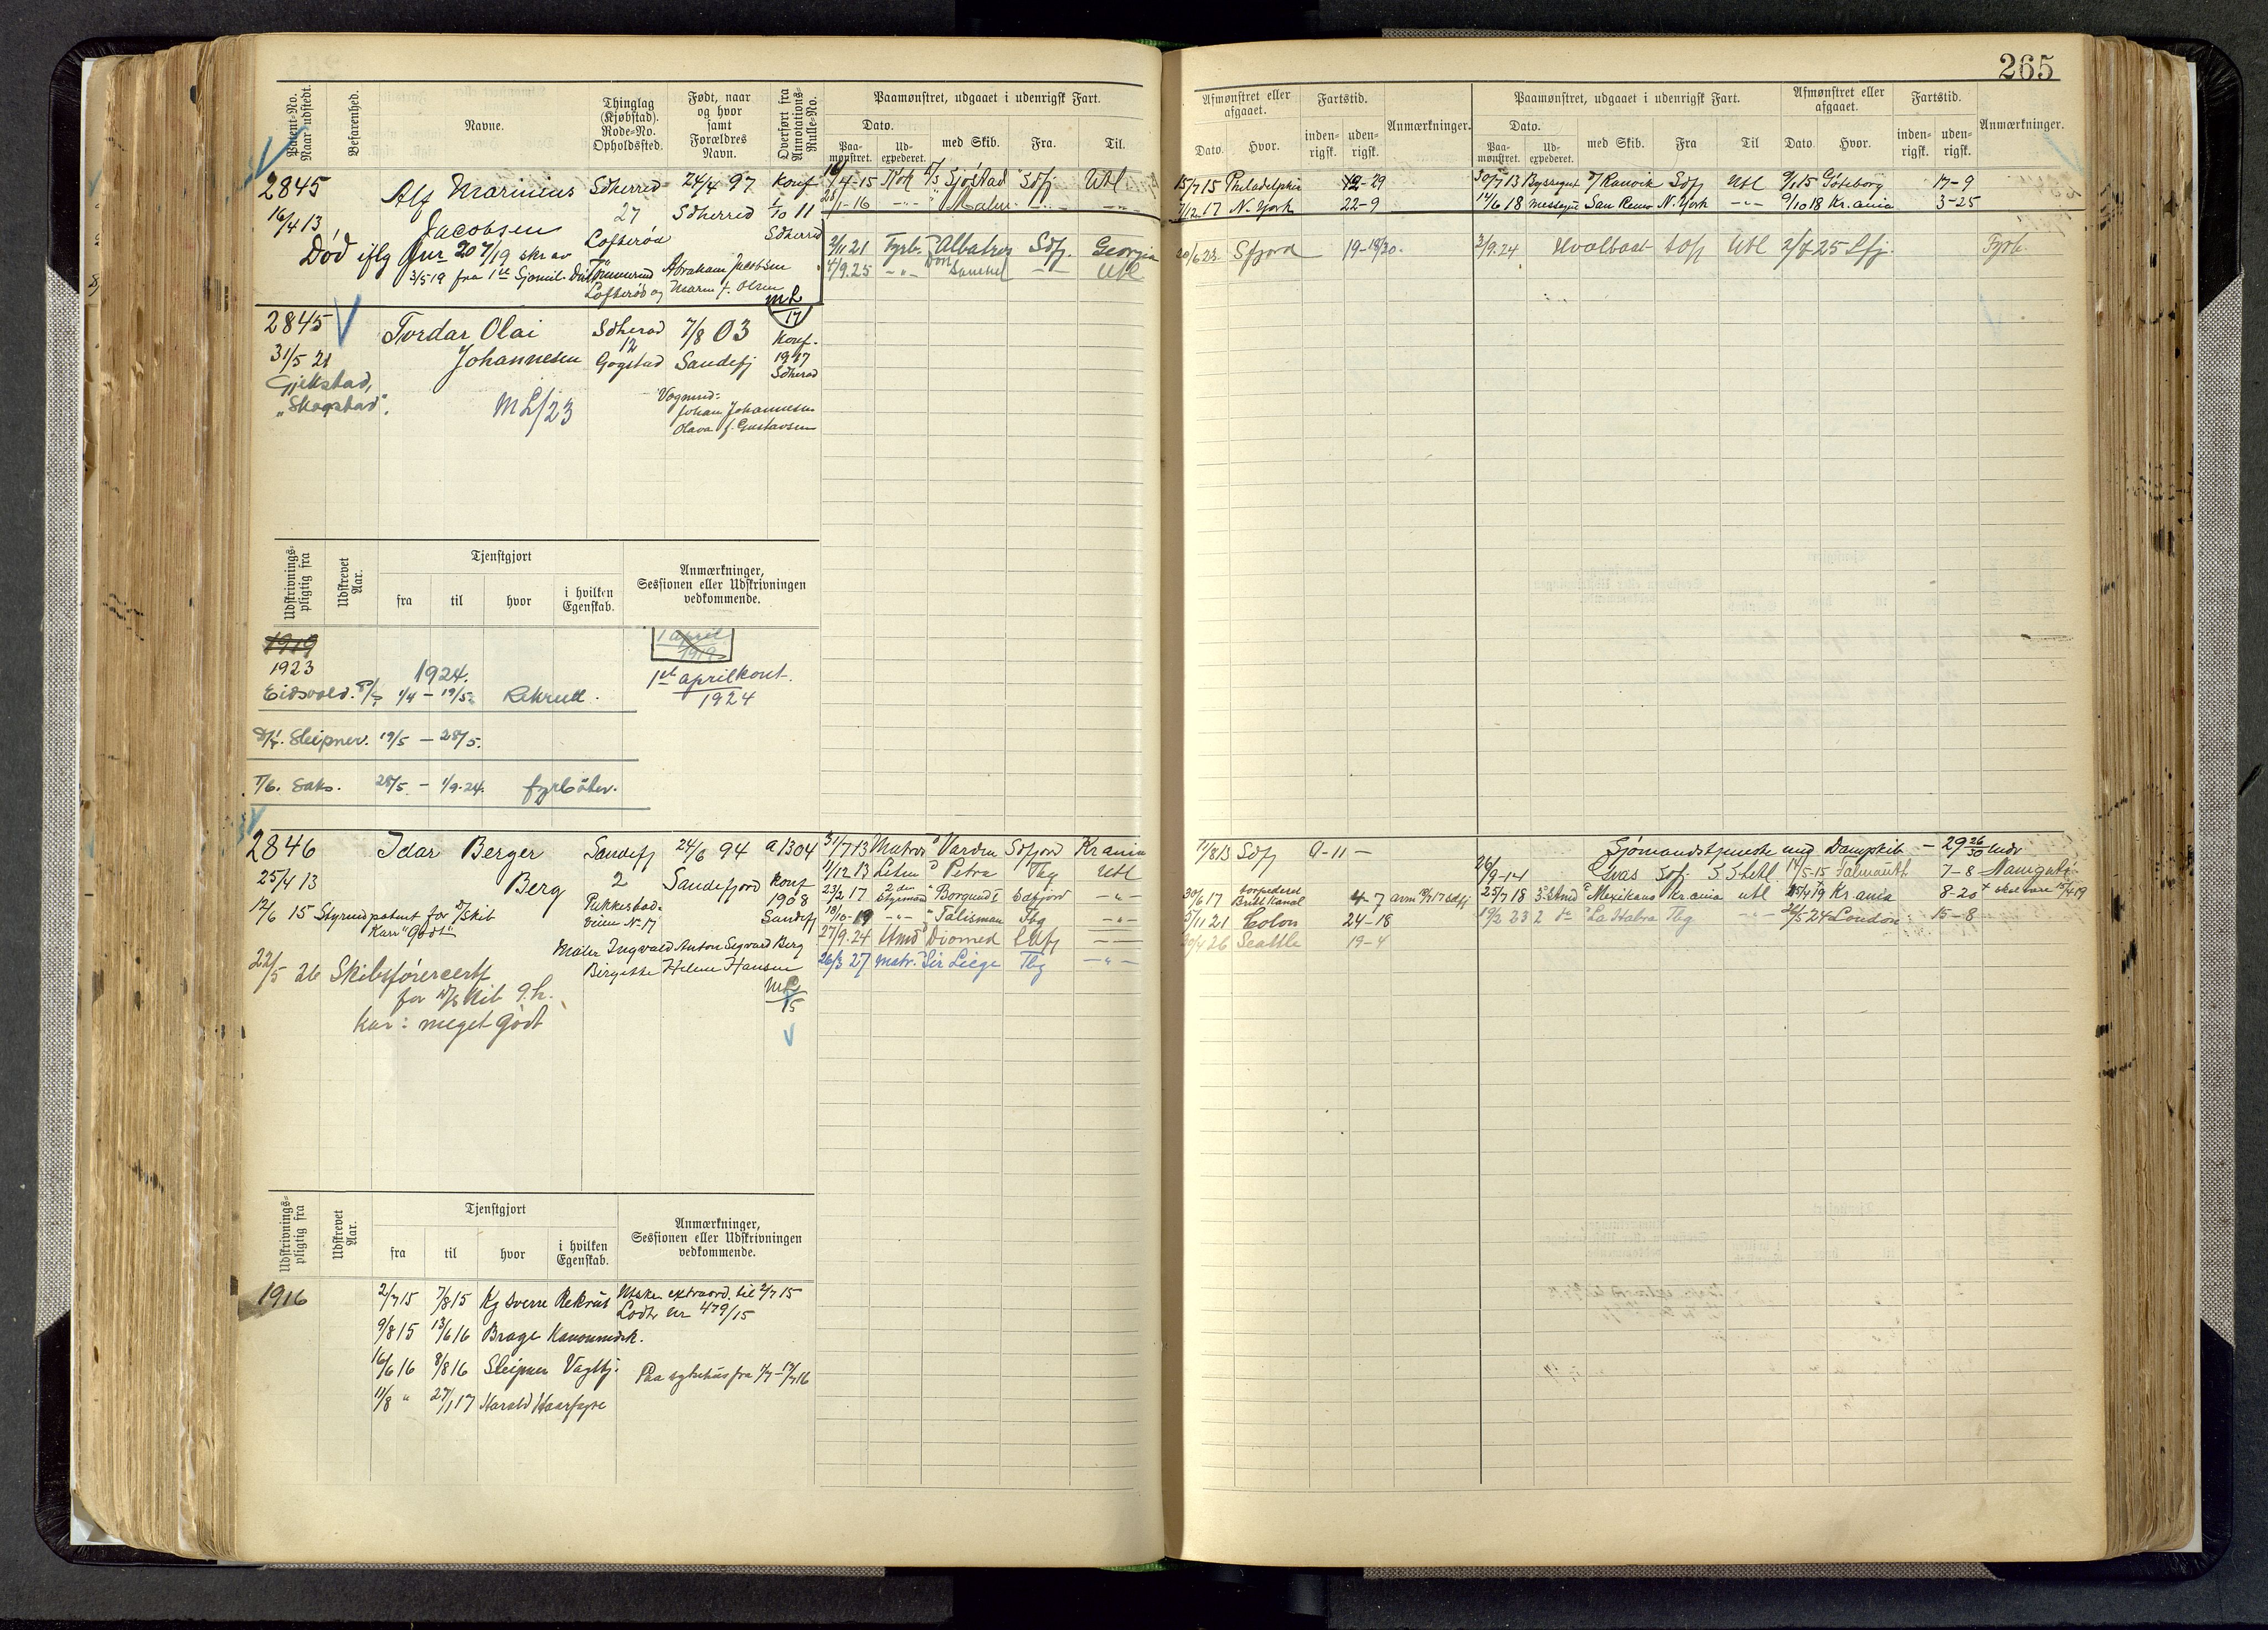 265
Patent-No. Naar udstedt.
Befarenhed.
Navne.
Thinglag (Kjøbstad). Rode-No. Opholdssted.
Født, naar og hvor samt Forældres Navn.
Overført fra Annotations-Rulle-No.
Paamønstret, udgaaet i udenrigsk Fart.
Dato.
Paamønstret.
Udexpederet.
med Skib.
Fra.
Til.
Afmønstret eller afgaaet.
Dato.
Hvor.
Fartstid.
indenrigsk.
udenrigsk.
Anmærkninger.
Paamønstret, udgaaet i udenrigsk Fart.
Dato.
Paamønstret.
Udexpederet.
med Skib.
Fra
Til
Afmønstret eller afgaaet.
Dato.
Hvor.
Fartstid.
indenrigsk.
udenrigsk.
Anmærkninger.
2845 Alf Marinius Sdherred 24/4 97 Konf
16/4 13 Jacobsen 27 Sdherred 1/10 11
Lofterød Sdherred
Død iflg Jnr 20 7/19 skr av
3/5 19 fra 1ste Sjømil. Abraham Jacobsen
Lofterød og Maren f. Olsen
/4-15 Kok Sjøstad Sdfj Utl
15/7 15 Philadelphia 12-29
30/7 13 Byssegut Ranvik Sdfj Utl 9/1 15 Gøteborg 17-9
/1-16 -"- -"- -"-
7/12 17 N. York 22-9
14/6 18 Messegut San Remo N. York -"- 9/10 18 Kr.ania 3-25
2845 Tordar Olai Sdherad 7/8 03 ML/17
31/5 21 Johannesen 12 Konf.
Gogstad Sandefj 1917
Sdherad
Gjekstad,
"Skogstad".
ML/23
Vognmd:
Johan Johannesen
Olava f. Gustavsen
2/11 21 Fyrb. Albatros Sdfj. Georgia
20/6 23 Sfjord
2/9.24 Hvalbaat Utl 2/7-25 Sfj. Fyrb.
4/9.25 -"- -"- Utl
Udskrivningspligtig fra
Udskrevet Aar.
Tjenstgjort
fra
til
hvor
i hvilken Egenskab.
Anmærkninger, Sessionen eller Udskrivningen vedkommende.
1919
1923 1924.
1 april
1919
Eidsvold. 1/4 - 19/5 Rekrutt.
1st april kont.
1924
Sleipner. 19/5 - 28/5.
T/b. Laks. 28/5 - 1/9.24. fyrbøter.
2846 Idar Berger Sandefj 24/6 94 a 1304
25/4 13 Berg 2 Sandefjord Konf
1908
Sandefj
Pukkestad-
veien N-17
12/6 15 Styrmdpatent for D/skib
Karr "Godt"
Maler Ingvald Anton Sigvard Berg
Bergitte Helene Hansen
22/5 26 Skibsførercertf
for D/skib g.h.
Kar: meget godt
ML/15
31/7 13 Matros Varden Sdfjord Kr.ania
11/8 13 Sdfj 0-11-
Sjømandstjeneste med Dampskib - 29 26/30 mdr
1/12 13 Petra Tbg Utl
26/9-14 Sdfj. 14/5-15 Falmouth 7-8
23/2 17 2den Styrmand Borgund I Sdfjord -"-
30/6 17 torpederet Brittl Kanal 4-7
25/7 18 3 Stmd Mexikano Kr.ania utl 15/4 19 Kr.ania 8-20
18/10-19 -"- Talisman Tbg -"-
5/11 21 Colon 24-18
19/2 23 2 do La Habra Tbg -"- 26/5-24 London 15-8
27/9.24 Stmd Diomed -"-
20/4 26 Seattle 19-4
26/3 27 matr. Sir Liege Tbg -"-
Udskrivningspligtig fra
Udskrevet Aar.
Tjenstgjort
fra
til
hvor
i hvilken Egenskab.
Anmærkninger, Sessionen eller Udskrivningen vedkommende.
1916 2/7 15 7/8 15 Kg Sverre Rekrut Utskr. extraord. til 2/7 15
Lodtr nr 479/15
9/8 15 13/6 16 Brage Kanonmdsk.
16/6 16 8/8 16 Sleipner Vagtbj. Paa sykehus fra
11/8 " 27/1 17 Harald Haarfagre